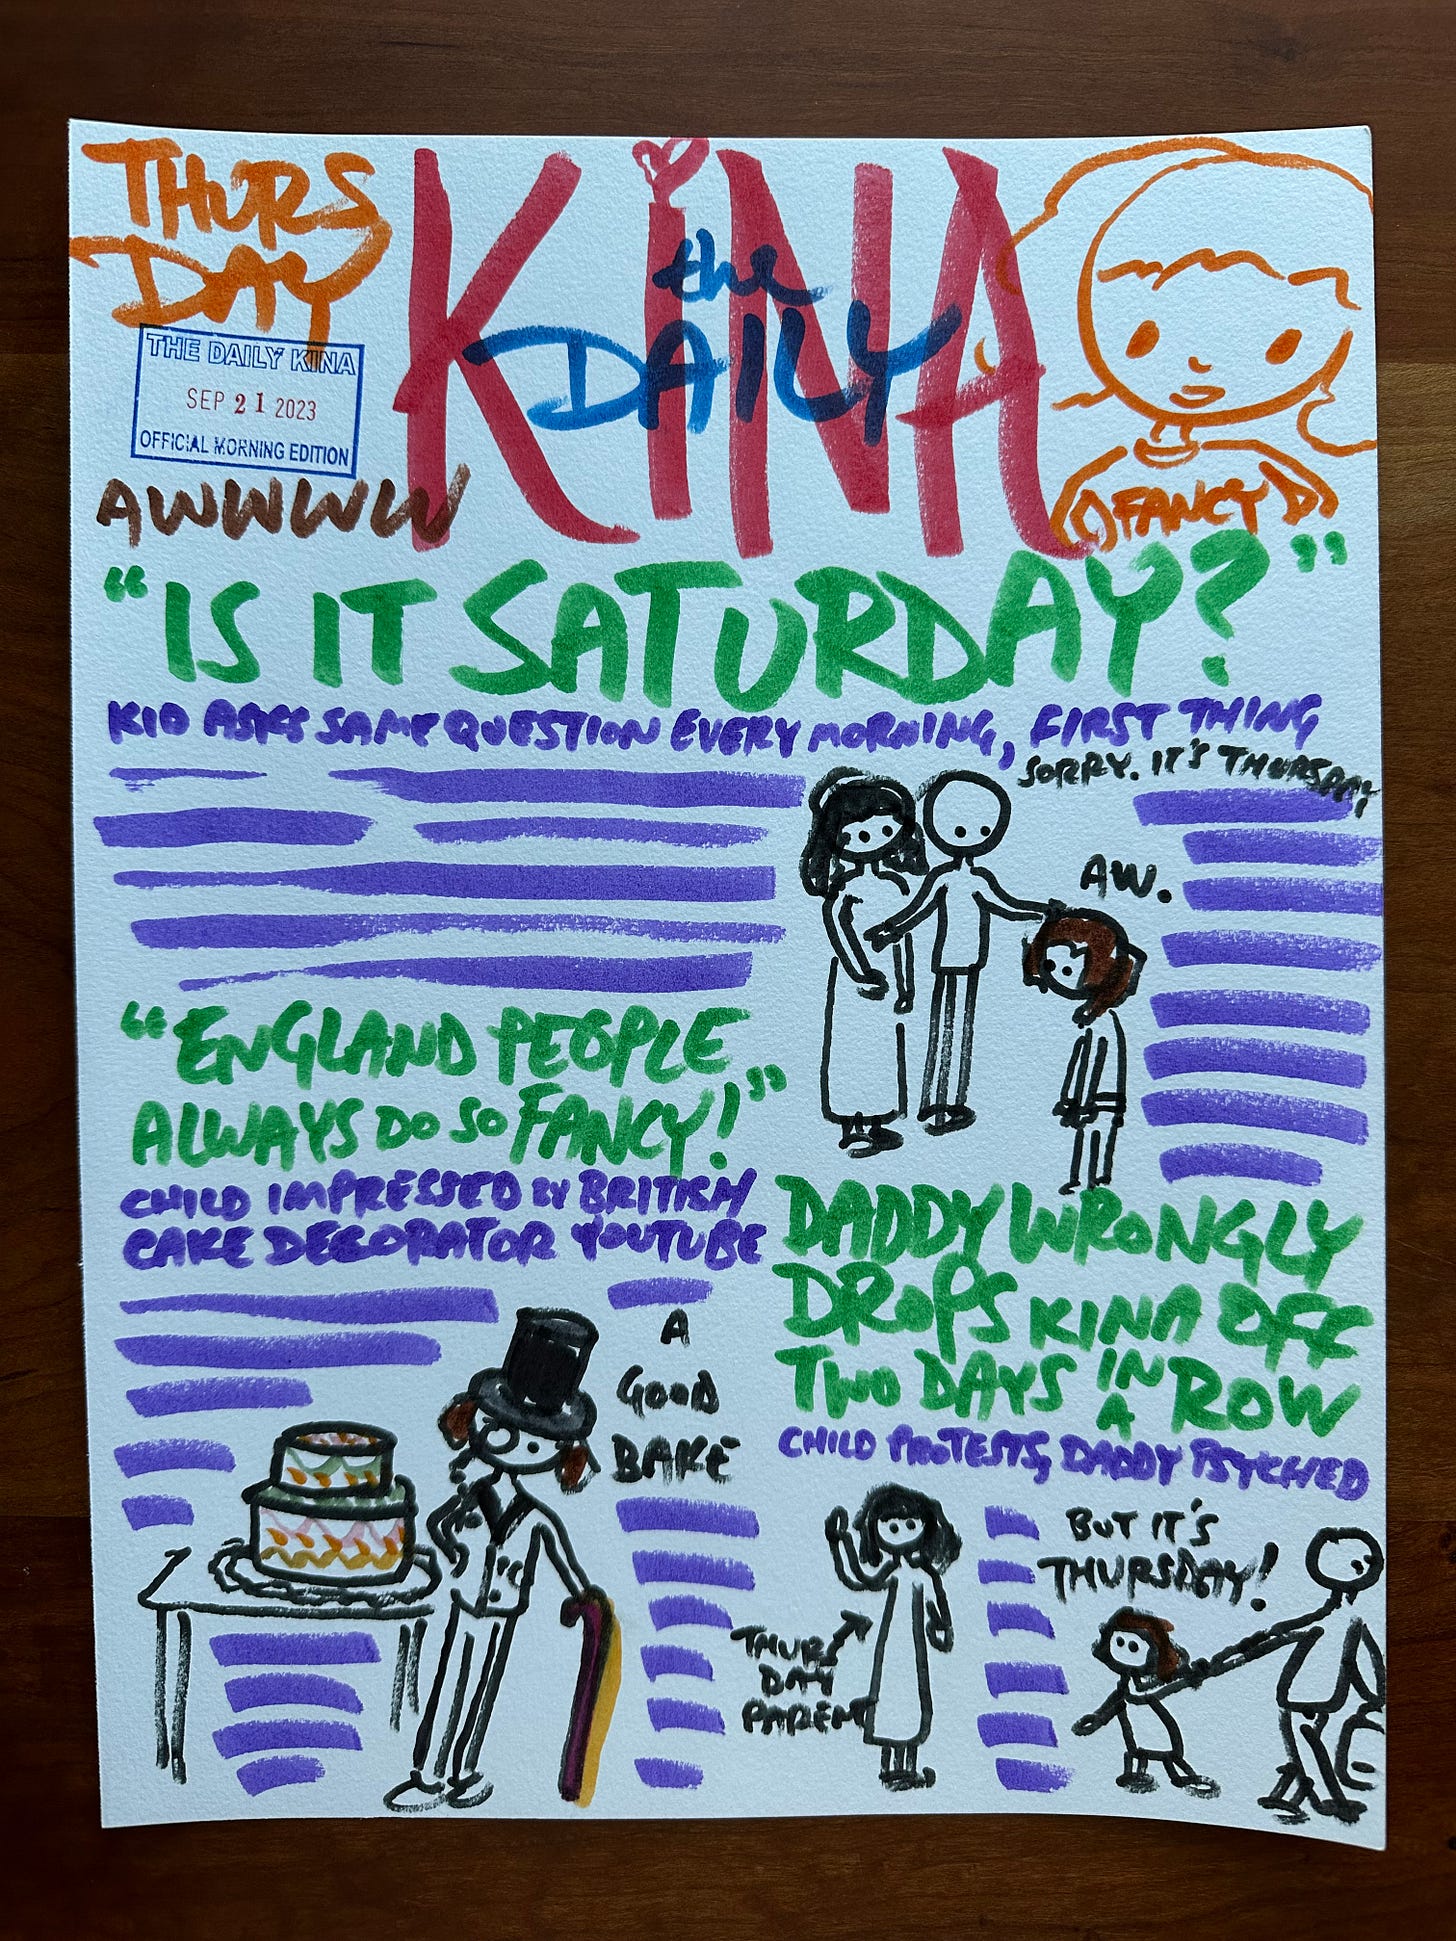 THURS
DAY
THE DAILY KINA
SEP 21 2023
OFFICIAL MORNING EDITION
the
DAILY
KINA
AWWWW
FANCY
"IS IT SATURDAY?"
KID ASKS SAME QUESTION EVERY MORNING, FIRST THING
SORRY. IT'S THURSDAY
AW.
"ENGLAND PEOPLE
ALWAYS DO SO FANCY!"
CHILD IMPRESSED BY BRITISH
CAKE DECORATOR YOUTUBE
A
GOOD
BAKE
DADDY WRONGLY
DROPS KINA OFF
TWO DAYS IN A ROW
CHILD PROTESTS, DADDY PSYCHED
THURS
DAY
PARENT
BUT IT'S
THURSDAY!